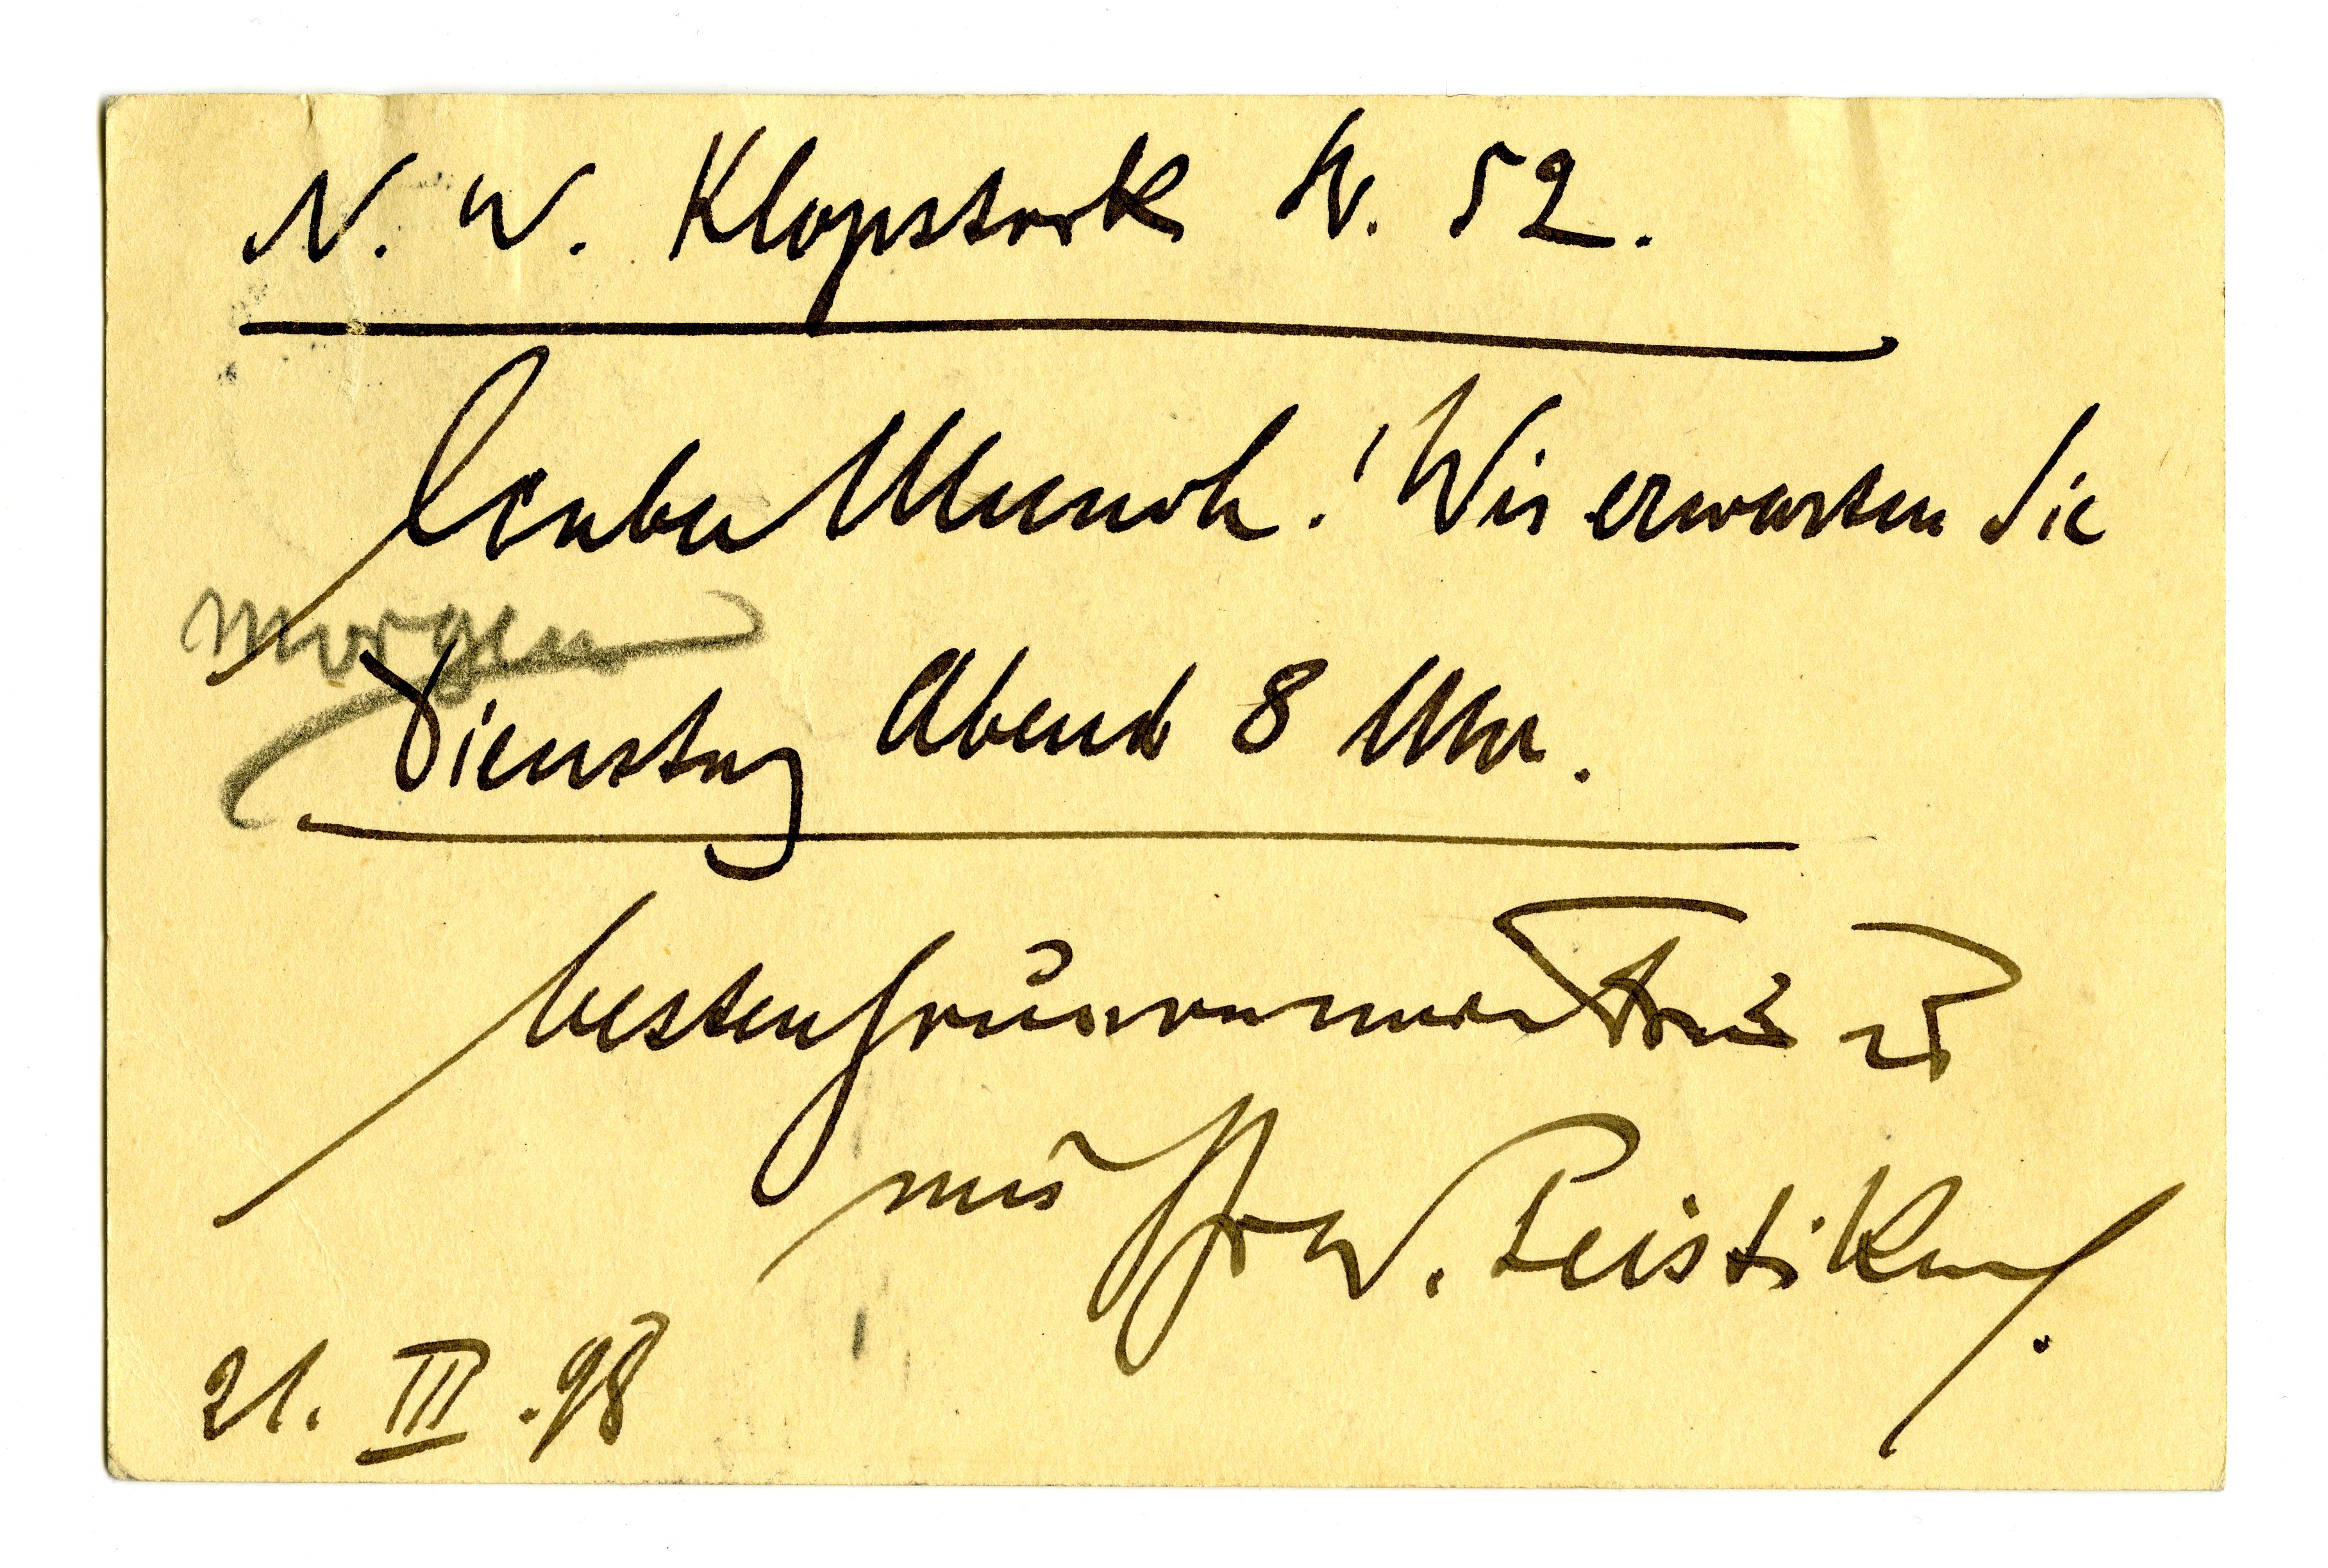 N. W. Klopstock Str. 52.
Lieber Munch! Wir erwarten Sie
morgen
Dienstag Abend 8 Uhr.
besten Gruss von meiner Frau u
W. Leistikow.
21. III. 98